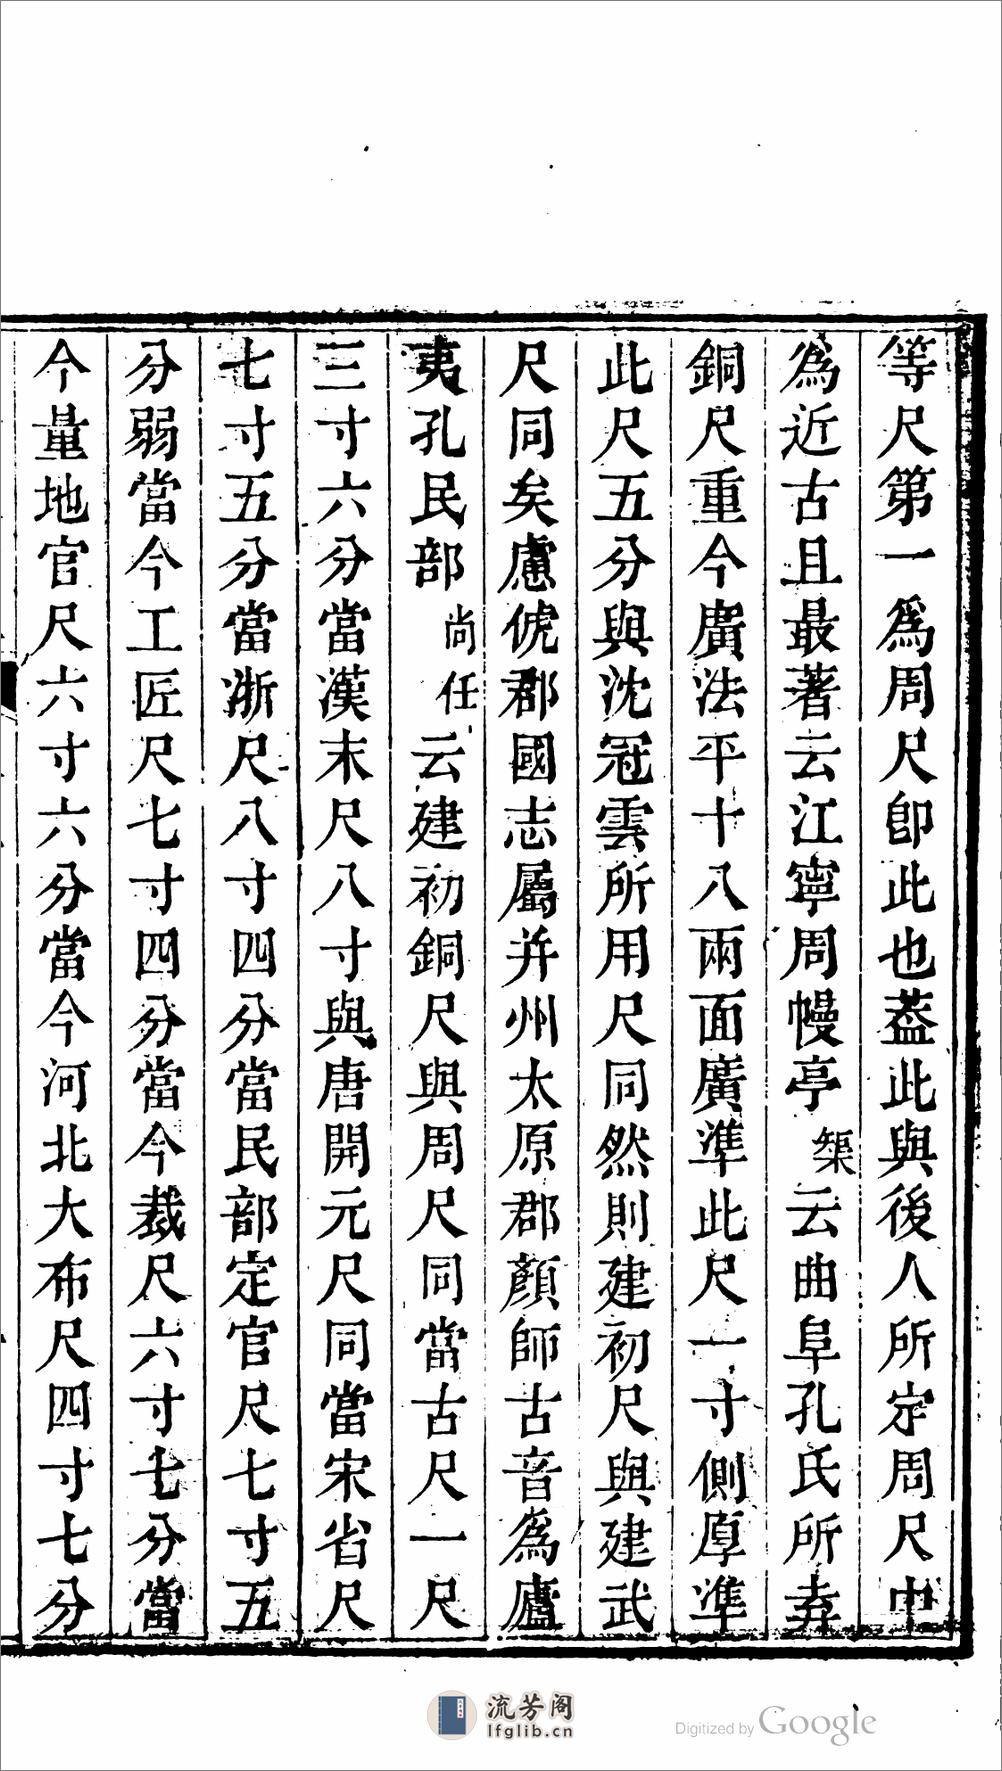 等尺第一爲周尺卽此也葢此與後人所定周尺中
為近古且最著云江寧周幔亭榘云曲阜孔氏所弆
銅尺重今廣法平十八兩面廣準此尺一寸側厚準
此尺五分與沈冠雲所用尺同然則建初尺與建武
尺同矣慮俿郡國志屬并州太原郡顏師古音為廬
夷孔民部尚任云建初銅尺與周尺同當古尺一尺
三寸六分當漢末尺八寸與唐開元尺同當宋省尺
七寸五分當浙尺八寸四分當民部定官尺七寸五
分弱當今工匠尺七寸四分當今裁尺六寸七分當
今量地官尺六寸六分當今河北大布尺四寸七分
流芳阁
lfglib.cn
Digitized by Google